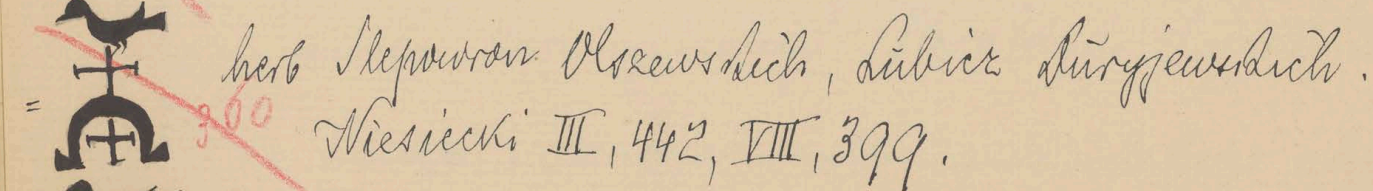 herb Slepowron Olszewskich, Lubicz Duryjewskich.
= 360
Niesiecki III, 442, VIII, 399.